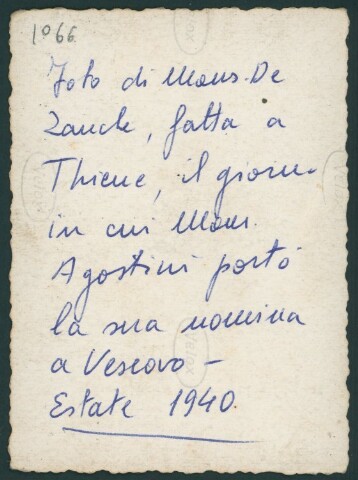 1066
Foto di Mons. De
Zanche, fatta a
Thiene, il giorno
in cui Mons.
Agostini portò
la sua nomina
a Vescovo –
Estate 1940.
Velox